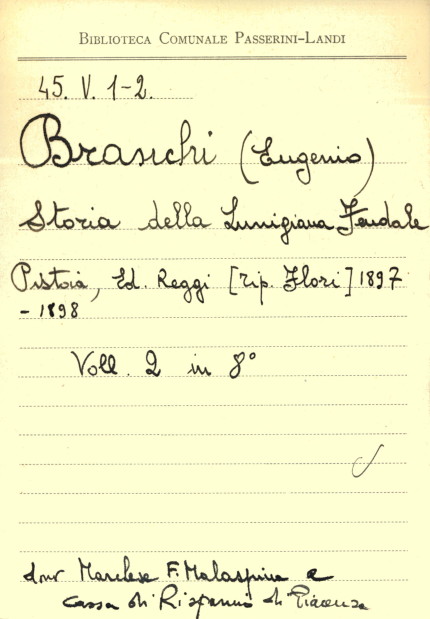 BIBLIOTECA COMUNALE PASSERINI-LANDI
45. V. 1-2.
Branchi (Eugenio)
Storia della Lunigiana Feudale
Pistoia, Ed. Reggi [tip. Flori] 1897
- 1898
Voll. 2 in 8°
dono Marchese F. Malaspina e
Cassa di Risparmio di Piacenza